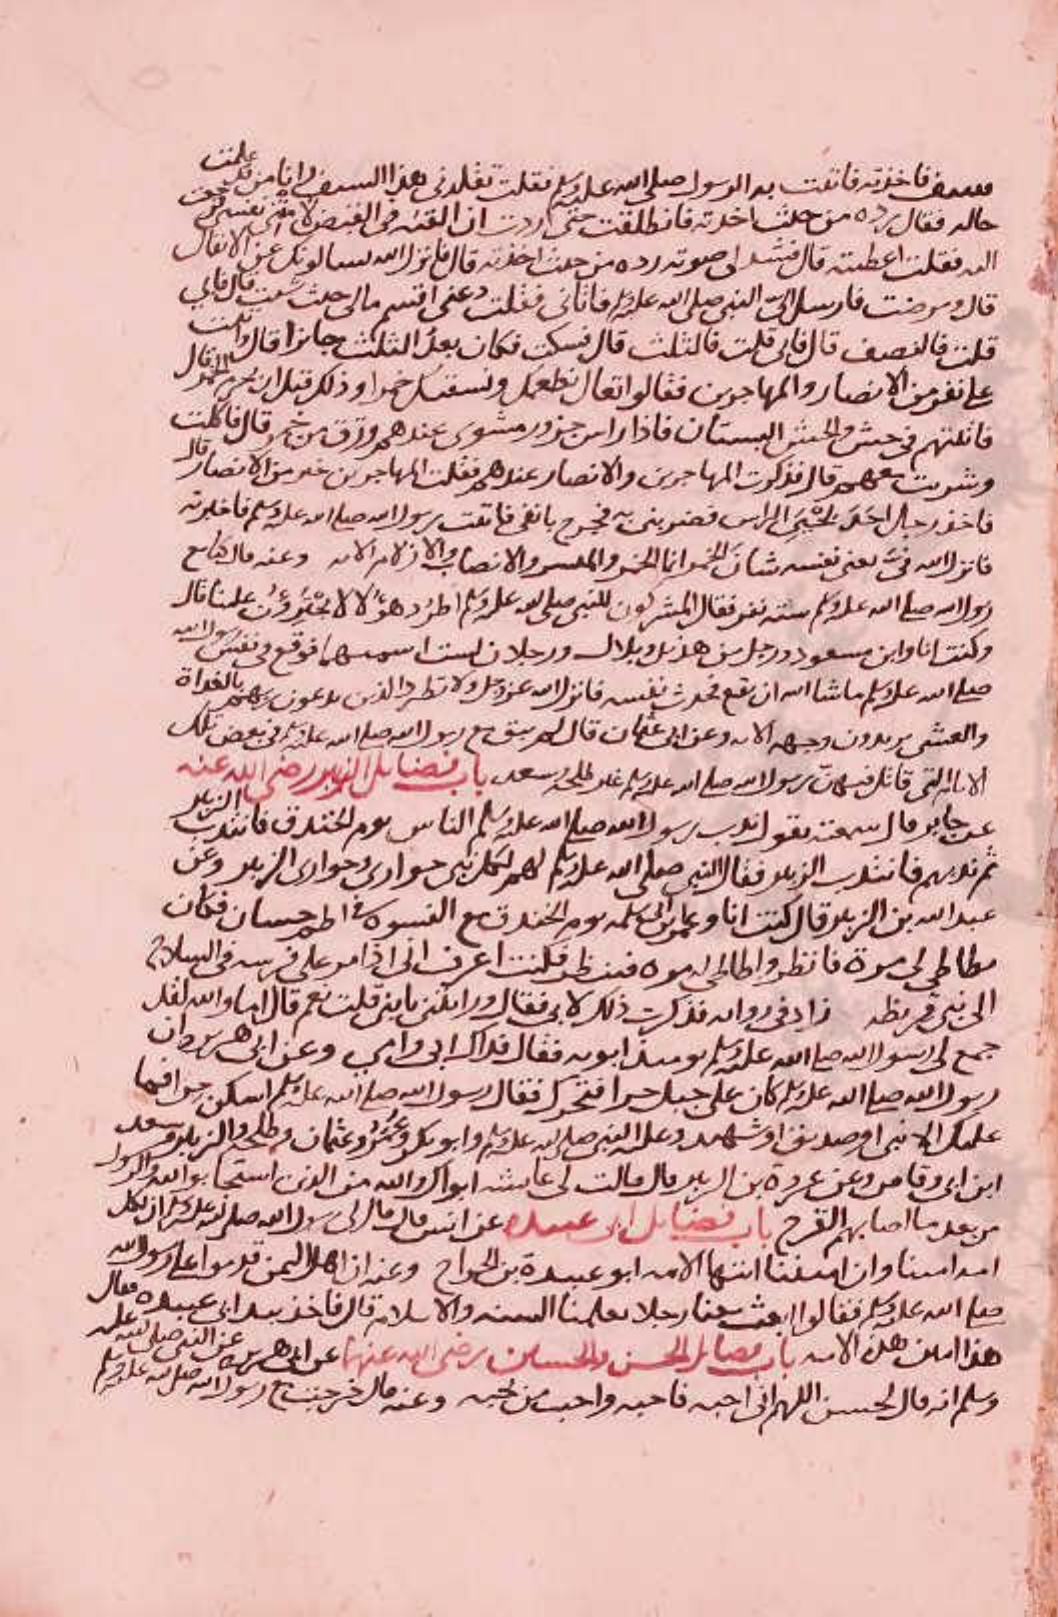 سيف فاخذته فاتيت به الرسول صلى الله عليه وسلم فقلت نفلني هذا السيف وانا من قد علمت
حاله فقال رده من حيث اخذته فانطلقت حتى اردت ان القيه في القبض لامتني نفسي فرجعت
اليه فقلت اعطنيه قال فشد لي صوته رده من حيث اخذته قال فانزل الله يسالونك عن الانفال
قال ومرضت فارسل الى النبي صلى الله عليه وسلم فاتاني فقلت دعني اقسم مالي حيث شئت قال فابي
قلت فالنصف قال فابى قلت فالثلث قال فسكت فكان بعدُ الثلث جايزا قال واتيت
على نفر من الانصار والمهاجرين فقالوا تعال نطعمك ونسقيك خمرا وذلك قبل ان تحرم الخمر قال
فاتيتهم في حش والحش البستان فاذا راس جزور مشوي عندهم وزق من خمر قال فاكلت
وشربت معهم قال فذكرت المهاجرين والانصار عندهم فقلت المهاجرين خير من الانصار قال
فاخذ رجل احد لحيي الراس فضربني به فجرح بانفي فاتيت رسول الله صلى الله عليه وسلم فاخبرته
فانزل الله فيّ يعني نفسه شان الخمر انما الخمر والميسر والانصاب والازلام الايه وعنه قال كنا مع
رسول الله صلى الله عليه وسلم سته نفر فقال المشركون للنبي صلى الله عليه وسلم اطرد هؤلا لا يجترؤن علينا قال
وكنت انا وابن مسعود ورجل من هذيل وبلال ورجلان لست اسميهما فوقع في نفس رسول الله
صلى الله عليه وسلم ما شا الله ان يقع فحدث نفسه فانزل الله عز وجل ولا تطرد الذين يدعون ربهم بالغداة
والعشي يريدون وجهه الايه وعن ابي عثمان قال لم يبق مع رسول الله صلى الله عليه وسلم في بعض تلك
الايام التي قاتل فيهن رسول الله صلى الله عليه وسلم غير طلحه وسعد باب فضايل الزبير رضي الله عنه
عن جابر قال سمعته يقول ندب رسول الله صلى الله عليه وسلم الناس يوم الخندق فانتدب الزبير
ثم ندبهم فانتدب الزبير فقال النبي صلى الله عليه وسلم لهم لكل نبي حواري وحواري الزبير وعن
عبد الله بن الزبير قال كنت انا وعمر بن ابي سلمه يوم الخندق مع النسوه في اطم حسان فكان
يطاطي لي مرة فانظر واطاطي له مره فينظر فكنت اعرف ابي اذا مر على فرسه في السلاح
الى بني قريظه زاد في روايه فذكرت ذلك لابي فقال ورايتني يا بني قلت نعم قال اما والله لقد
جمع لي رسول الله صلى الله عليه وسلم يوميذ ابويه فقال فداك ابي وامي وعن ابي هريره ان
رسول الله صلى الله عليه وسلم كان على جبل حرا فتحرك فقال رسول الله صلى الله عليه وسلم اسكن حرا فما
عليك الا نبي او صديق او شهيد وعليه النبي صلى الله عليه وسلم وابو بكر وعمر وعثمان وطلحه والزبير وسعد
ابن ابي وقاص وعن عروة بن الزبير قال قالت لي عايشه ابواك والله من الذين استجابوا لله والرسول
من بعد ما اصابهم القرح باب فضايل ابي عبيده عن انس قال قال لي رسول الله صلى الله عليه وسلم ان لكل
امه امينا وان اميننا ايتها الامه ابو عبيدة بن الجراح وعنه ان اهل اليمن قدموا على رسول الله
صلى الله عليه وسلم فقالوا ابعث معنا رجلا يعلمنا السنه والاسلام قال فاخذ بيد ابي عبيده فقال
هذا امين هذه الامه باب فضايل الحسن والحسين رضي الله عنهما عن ابي هريره عن النبي صلى الله عليه
وسلم انه قال لحسن اللهم اني احبه فاحبه واحبب من يحبه وعنه قال خرجت مع رسول الله صلى الله عليه وسلم